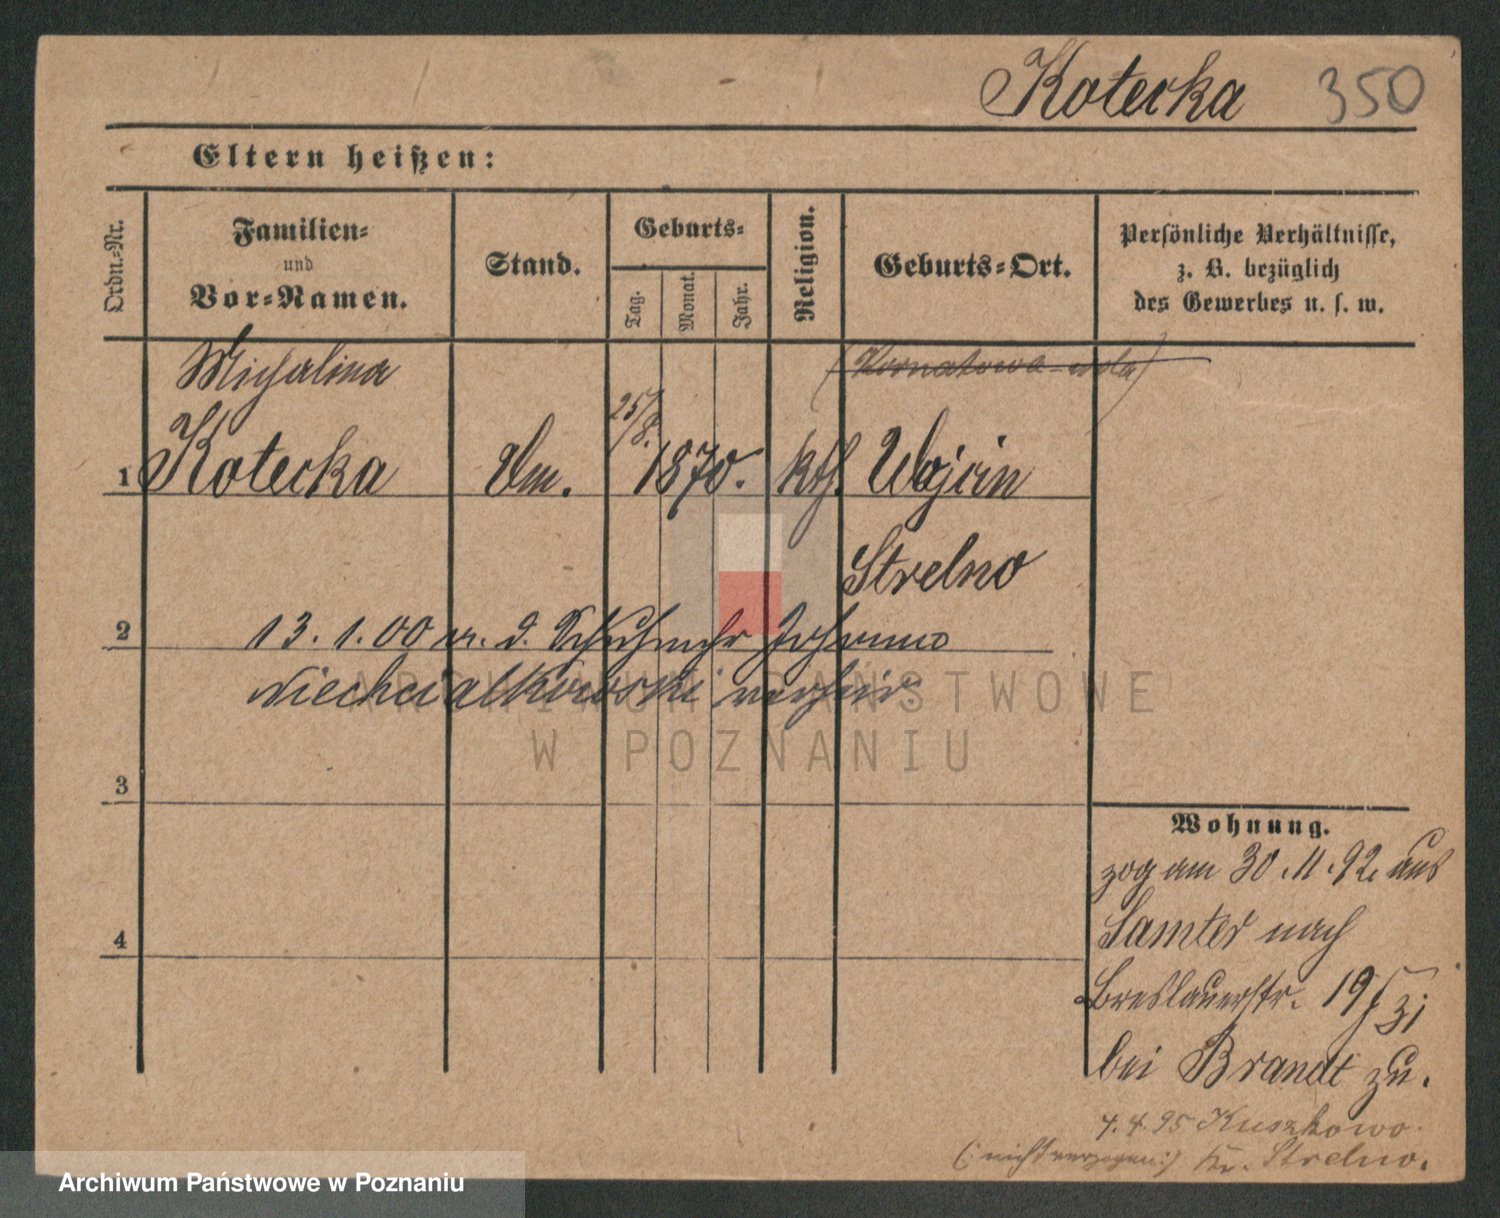 Kotecka 350
Eltern heißen:
Ordn.-Nr.
Familien-
und
Vor-Namen.
Stand.
Geburts-
Tag.
Monat.
Jahr.
Religion.
Geburts-Ort.
Persönliche Verhältnisse,
z. B. bezüglich
des Gewerbes u. s. w.
Michalina
(Kornatowa-wola)
25/8.
1 Kotecka Dm. 1870. kth. Wojcin
Strelno
2 13.1.00 m. d. Schuhmchr Johann
Niechcialkowski verheir.
3
4
Wohnung.
zog am 30.11.92. aus
Samter nach
Breslauerstr. 19
bei Brandt zu.
4.4.95 Kuszkowo.
(: nicht verzogen :) Kr. Strelno.
ARCHIWUM PAŃSTWOWE
W POZNANIU
Archiwum Państwowe w Poznaniu